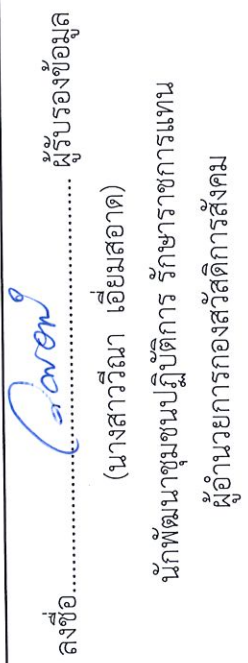 ลงชื่อ............................................ผู้รับรองข้อมูล
(นางสาววีณา เอี่ยมสอาด)
นักพัฒนาชุมชนปฏิบัติการ รักษาราชการแทน
ผู้อำนวยการกองสวัสดิการสังคม